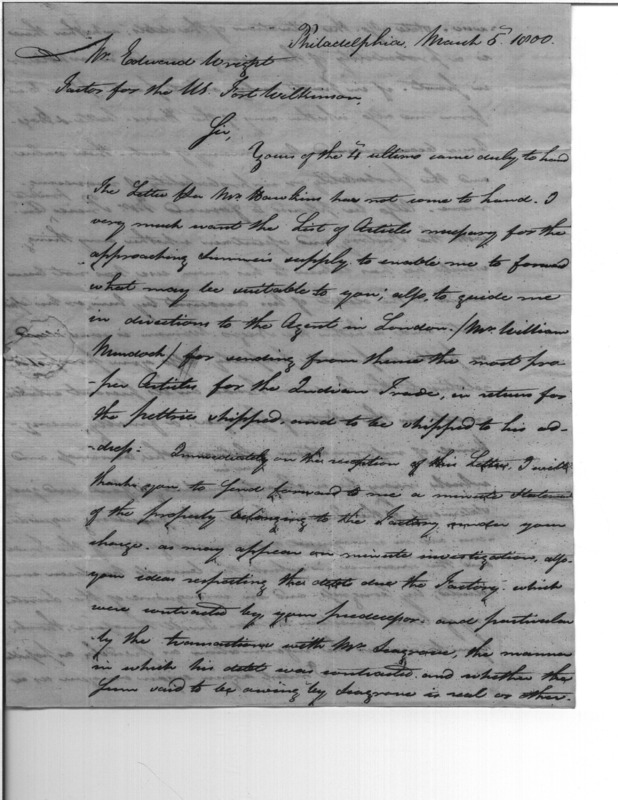 Philadelphia, March 5th 1800.
Mr. Edward Wright
Factor for the US Fort Wilkinson,
Sir,
Yours of the 4th ultimo came duly to hand
The Letter for Mr. Hawkins has not come to hand. I
very much want the List of Articles necessary for the
approaching summer's supply to enable me to forward
what may be suitable to you; also, to guide me
in directions to the Agent in London, /Mr. William
Murdoch/ for sending from thence the most pro-
-per Articles for the Indian Trade, in return for
the peltries shipped, and to be shipped to his ad-
-dress: Immediately on the reception of this Letter, I will
thank you, to send forward to me a minute Statement
of the property belonging to the Factory under your
charge, as may appear on minute investigation, also
your ideas respecting the debts due the Factory which
were contracted by your predecessor, and particular
-ly the transactions with Mr. Seagrove, the manner
in which his debt was contracted, and whether the
sum said to be owing by Seagrove is real or other-